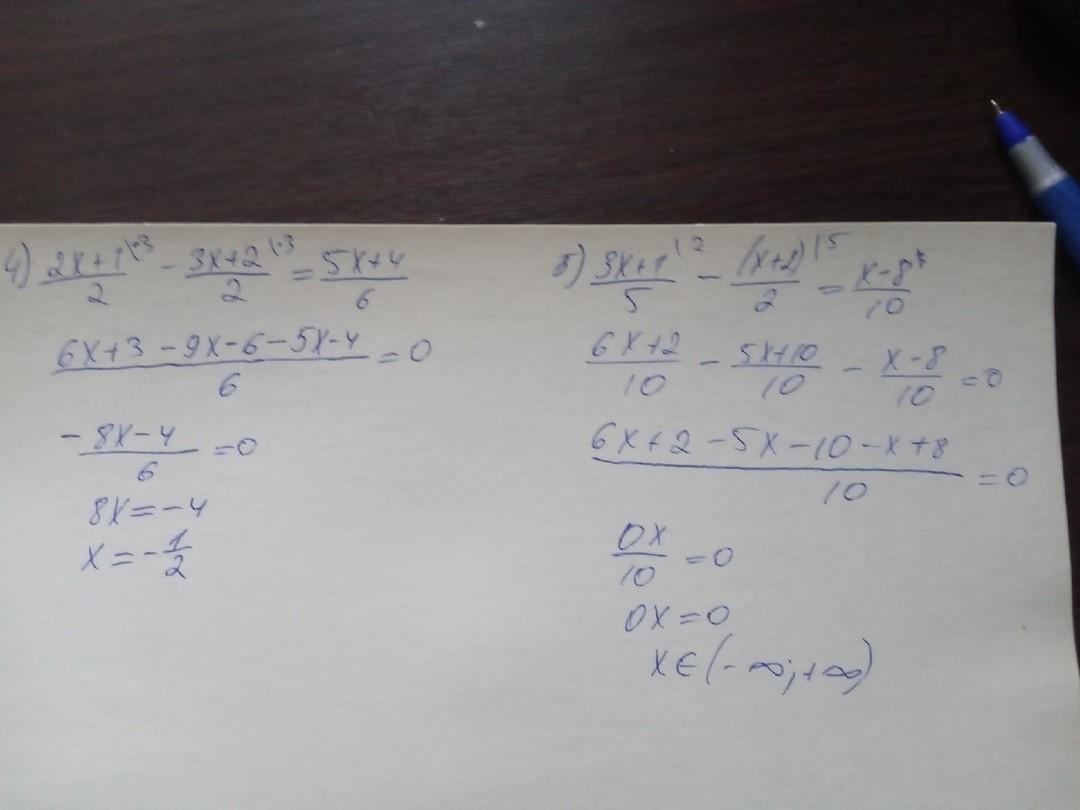 4) (2x+1)/2 \·3 - (3x+2)/2 \·3 = (5x+4)/6
(6x+3-9x-6-5x-4)/6 = 0
(-8x-4)/6 = 0
8x=-4
x=-1/2
б) (3x+1)/5 \2 - (x+2)/2 \5 = (x-8)/10
(6x+2)/10 - (5x+10)/10 - (x-8)/10 = 0
(6x+2-5x-10-x+8)/10 = 0
0x/10 = 0
0x=0
x∈(-∞;+∞)